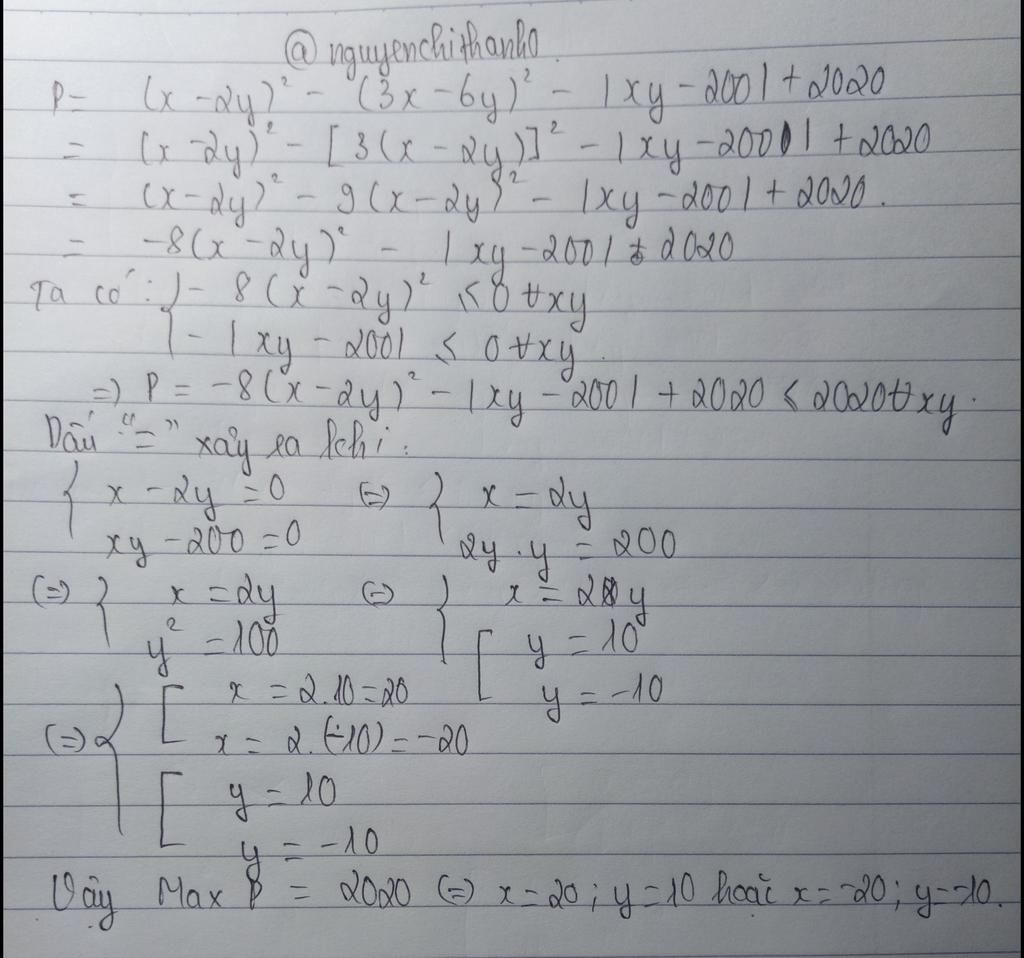 @nguyenchithanh0
P = (x - 2y)² - (3x - 6y)² - |xy - 200| + 2020
= (x - 2y)² - [3(x - 2y)]² - |xy - 200| + 2020
= (x - 2y)² - 9(x - 2y)² - |xy - 200| + 2020.
= -8(x - 2y)² - |xy - 200| + 2020
Ta có: { - 8(x - 2y)² ≤ 0 ∀xy
- |xy - 200| ≤ 0 ∀xy.
=> P = -8(x - 2y)² - |xy - 200| + 2020 ≤ 2020 ∀xy.
Dấu "=" xảy ra khi:
{ x - 2y = 0 (=) { x = 2y
xy - 200 = 0 2y . y = 200
(=) { x = 2y (=) { x = 2y
y² = 100 [ y = 10
y = -10
(=) { [ x = 2.10 = 20
x = 2.(-10) = -20
[ y = 10
y = -10
Vậy Max P = 2020 (=) x = 20; y = 10 hoặc x = -20; y = -10.